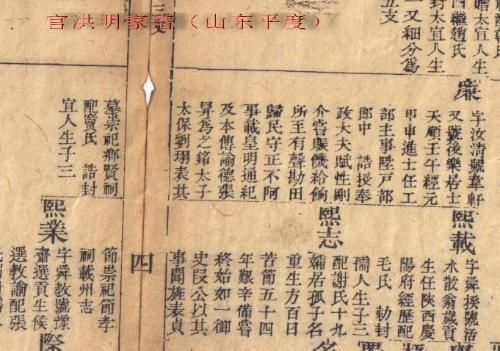 官洪明家谱（山东平度）
贈太宜人生
四繼趙氏
封太宜人生
一又細分為
五支
三支
廉
字汝清號葦軒
又號後樂居士
天順壬午經元
甲申進士任工
部主事陞戶部
郎中 誥授奉
政大夫賦性剛
介嘗賑饑給餉
所至有聲勘田
歸民守正不阿
事載皇明通紀
及本傳諭德張
昇為之銘太子
太保劉珝表其
墓崇祀鄉賢祠
配竇氏 誥封
宜人生子三
熙載
字舜揆號活
水散翁歲貢
生任陝西慶
陽府經歷配
毛氏 勅封
孺人生子三
熙志
配謝氏十九
孀居孤子名
重生方百日
苦節五十四
年艱辛備嘗
終始如一御
史段公以其
事聞旌表貞
四
節崇祀節孝
祠載州志
熙業
字舜教號豫
齋選貢生侯
選教諭配張